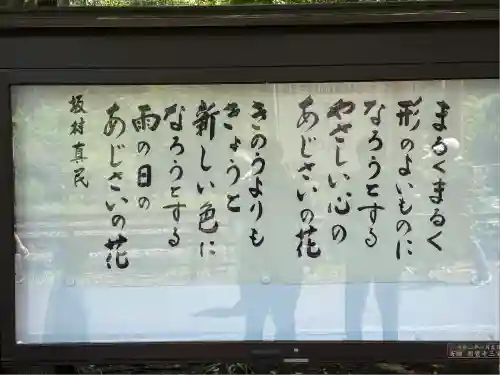 まるくまるく
形のよいものに
なろうとする
やさしい心の
あじさいの花
きのうよりも
きょうと
新しい色に
なろうとする
雨の日の
あじさいの花
坂村真民